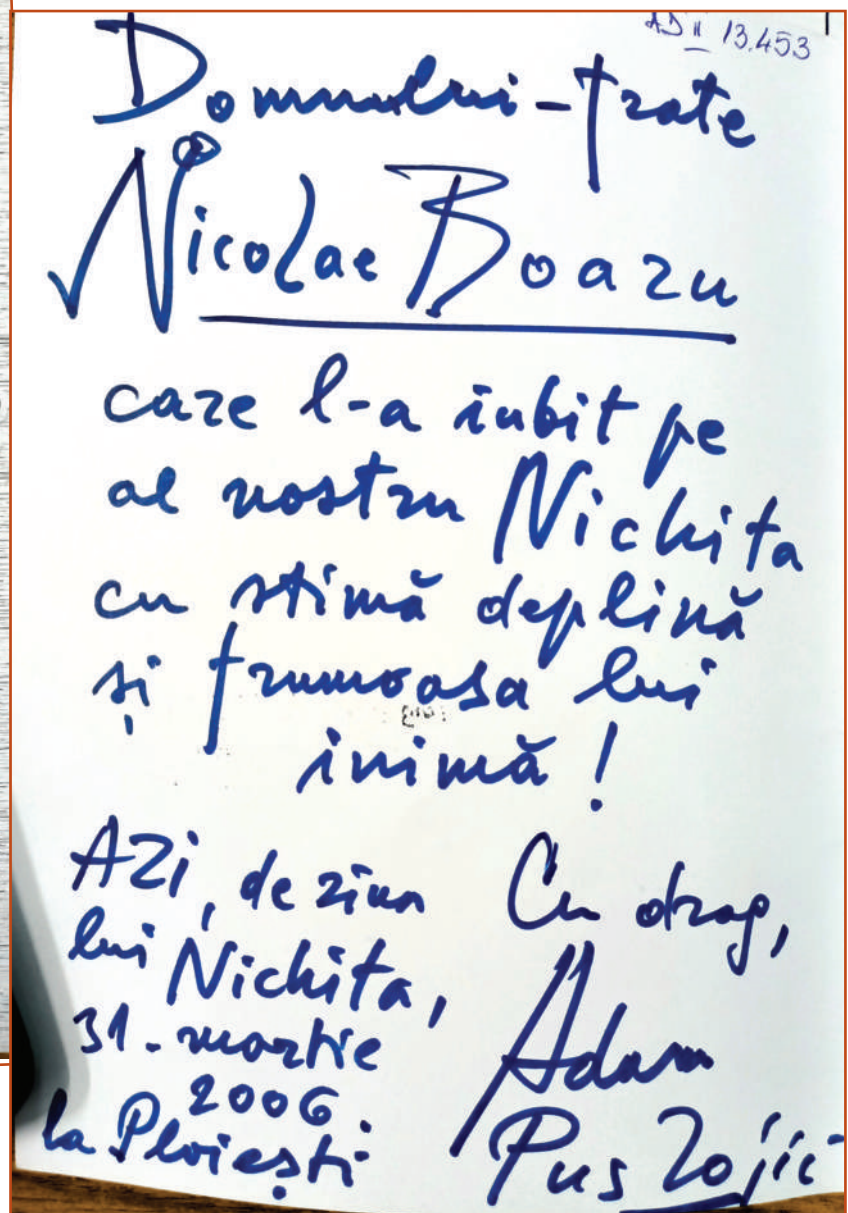 AD II 13.453
Domnului-frate
Nicolae Boaru
care l-a iubit pe
al nostru Nichita
cu stimă deplină
și frumoasa lui
inimă!
Azi, de ziua
lui Nichita,
31-martie
2006
la Ploiești
Cu drag,
Adam
Puslojić